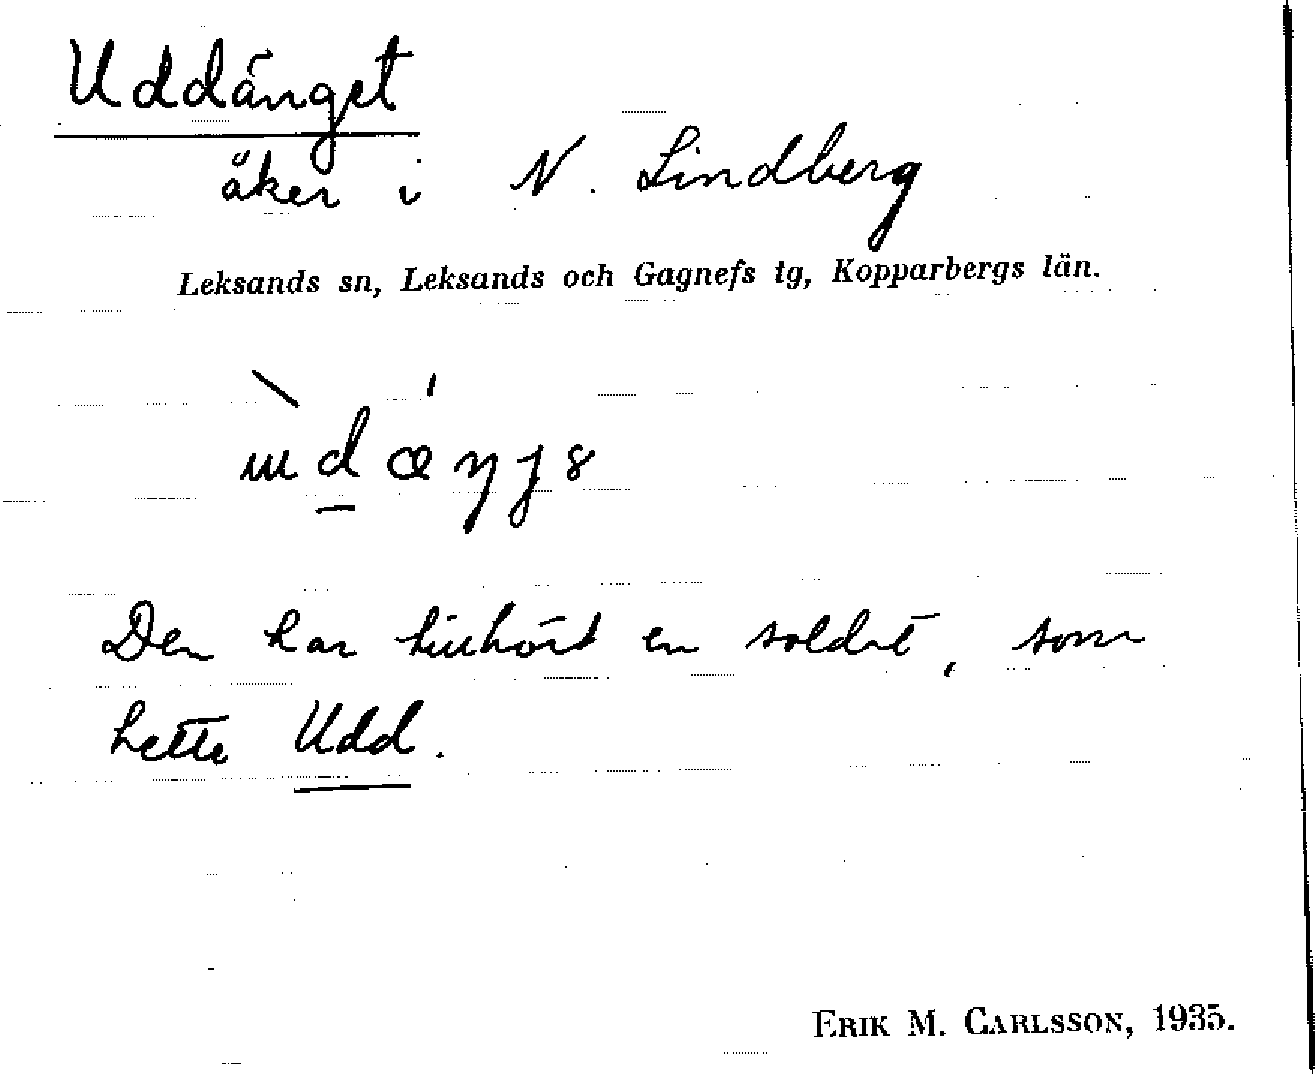 Uddänget
åker i N. Lindberg
Leksands sn, Leksands och Gagnefs tg, Kopparbergs län.
Den har tillhört en soldat, som
hette Udd.
ERIK M. CARLSSON, 1935.